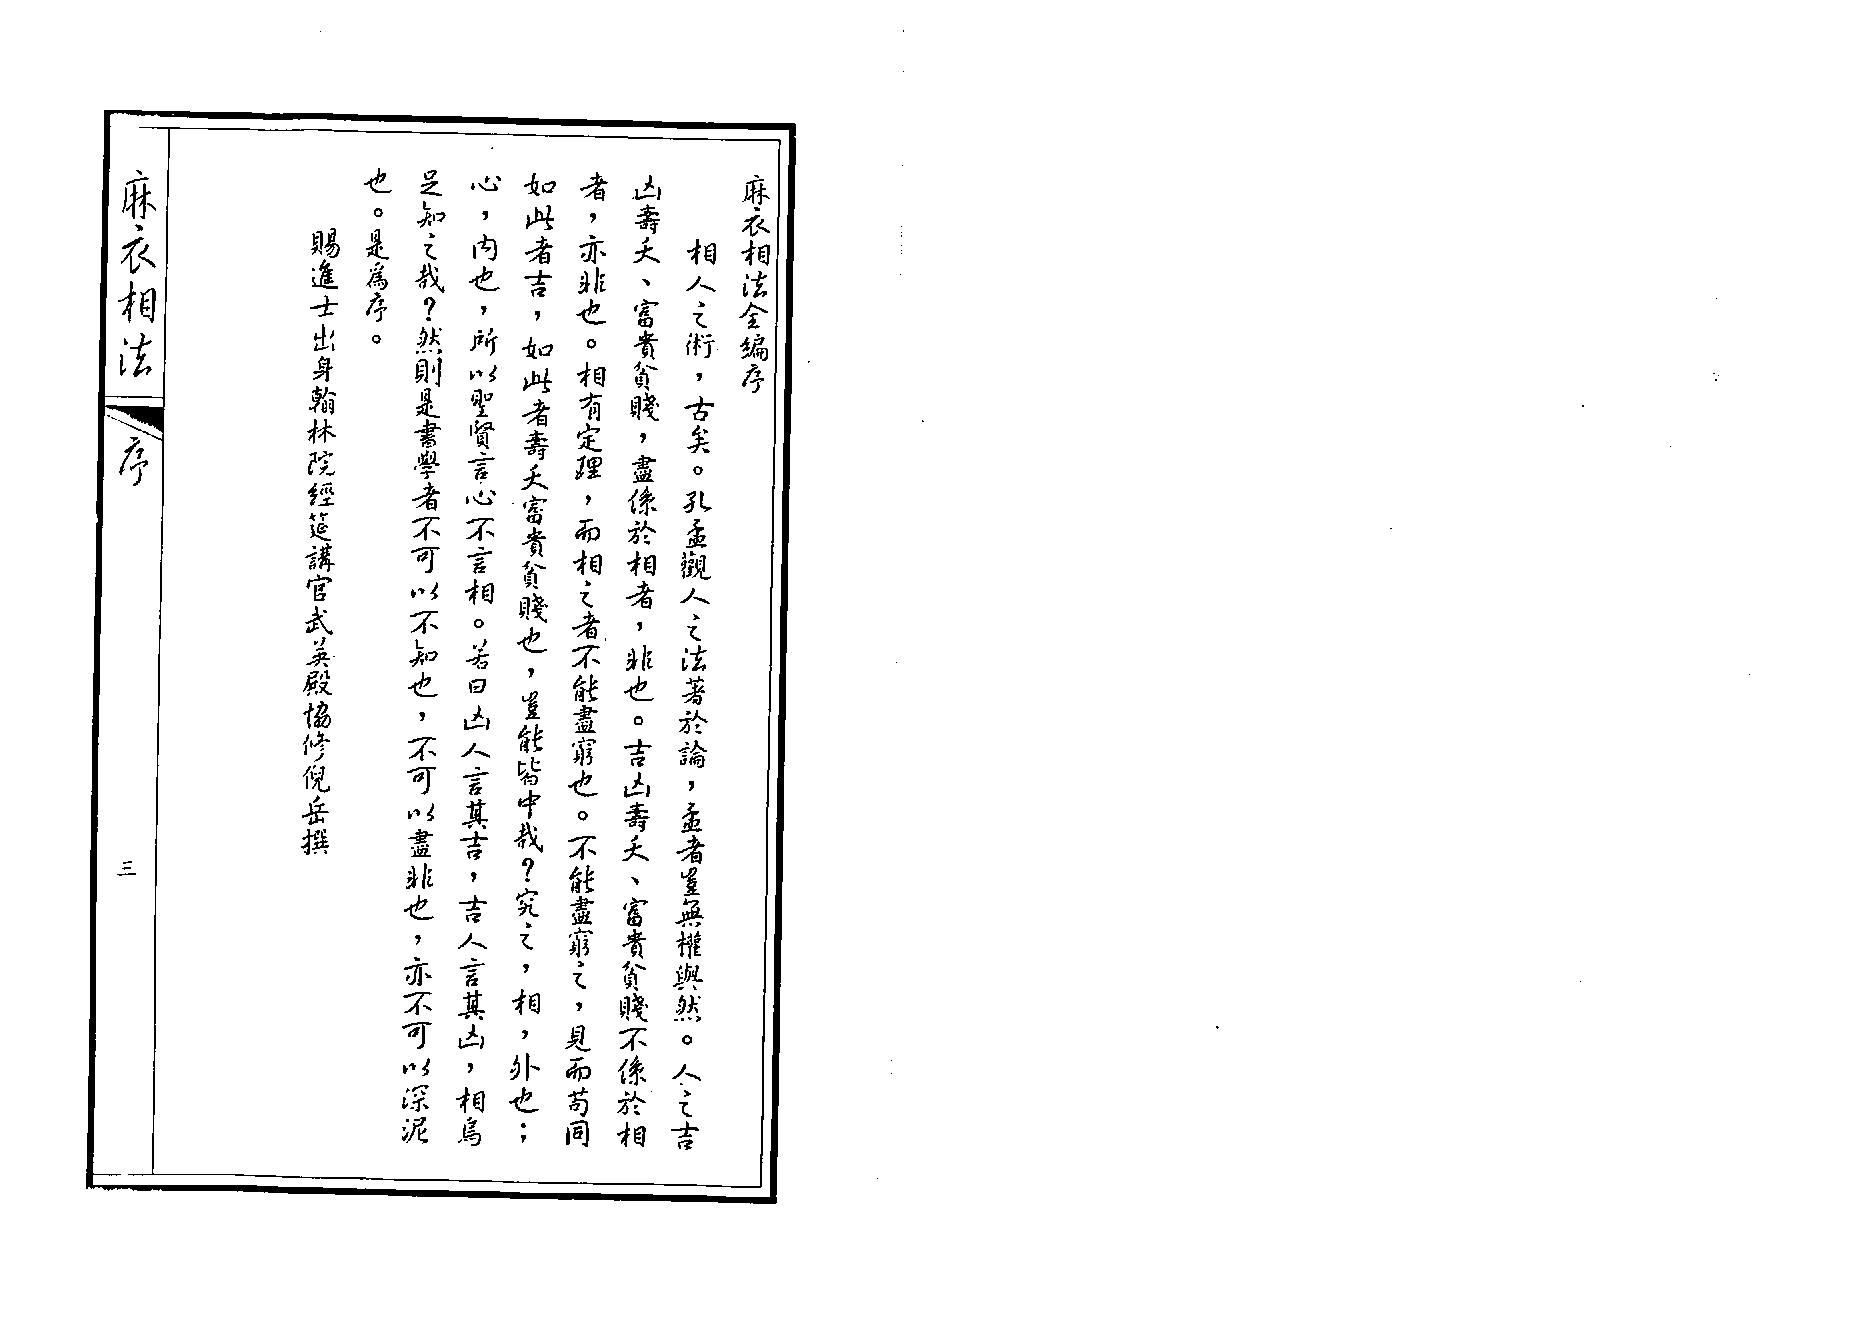 麻衣相法全編序
相人之術，古矣。孔孟觀人之法著於論，孟者豈無權與然。人之吉
凶壽夭、富貴貧賤，盡係於相者，非也。吉凶壽夭、富貴貧賤不係於相
者，亦非也。相有定理，而相之者不能盡窮也。不能盡窮之，見而苟同
如此者吉，如此者壽夭富貴貧賤也，豈能皆中哉？究之，相，外也；
心，內也，所以聖賢言心不言相。若曰凶人言其吉，吉人言其凶，相烏
足知之哉？然則是書學者不可以不知也，不可以盡非也，亦不可以深泥
也。是為序。
賜進士出身翰林院經筵講官武英殿協修倪岳撰
麻衣相法
序
三